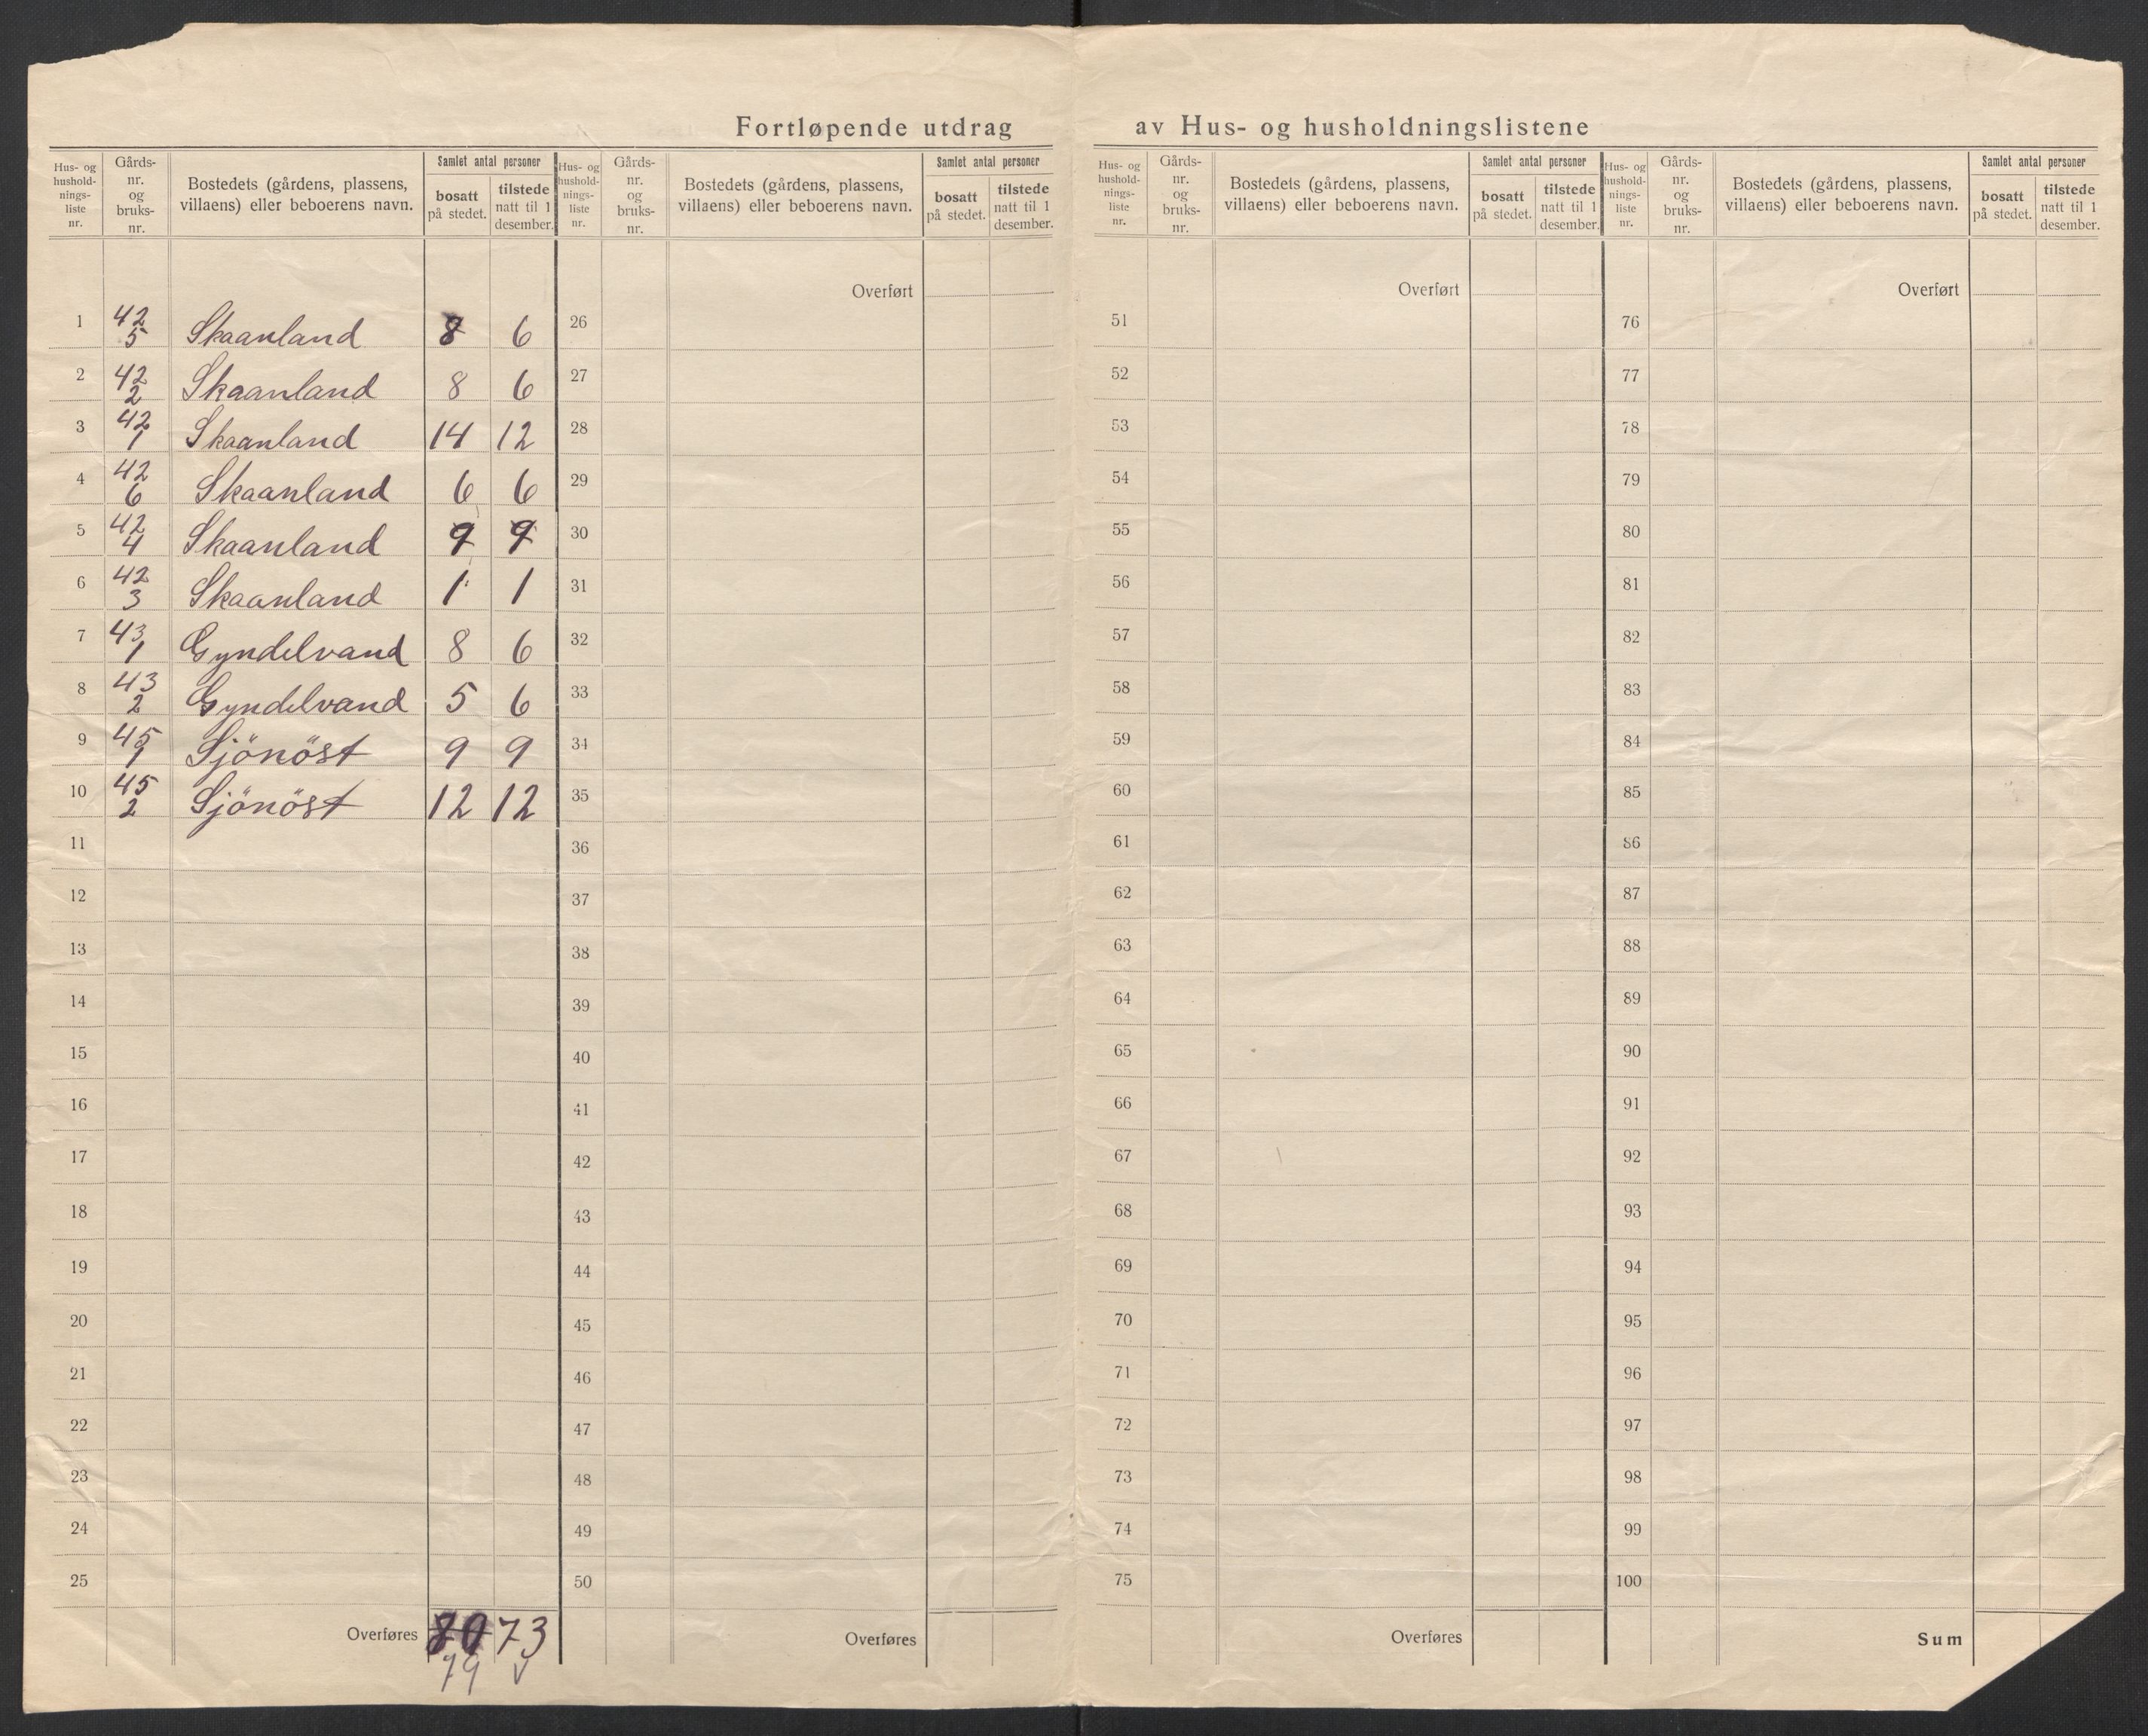 Fortløpende utdrag av Hus- og husholdningslistene
Hus- og hushold-nings-liste nr. Gårds-nr. og bruks-nr. Bostedets (gårdens, plassens, villaens) eller beboerens navn. Samlet antal personer bosatt på stedet. tilstede natt til 1 desember.
1 42/5 Skaanland 8 6
2 42/2 Skaanland 8 6
3 42/1 Skaanland 14 12
4 42/6 Skaanland 6 6
5 42/4 Skaanland 9 9
6 42/3 Skaanland 1 1
7 43/1 Gyndelvand 8 6
8 43/2 Gyndelvand 5 6
9 45/1 Sjönöst 9 9
10 45/2 Sjönöst 12 12
11
12
13
14
15
16
17
18
19
20
21
22
23
24
25
Overføres 80 73
79
Hus- og hushold-nings-liste nr. Gårds-nr. og bruks-nr. Bostedets (gårdens, plassens, villaens) eller beboerens navn. Samlet antal personer bosatt på stedet. tilstede natt til 1 desember.
Overført
26
27
28
29
30
31
32
33
34
35
36
37
38
39
40
41
42
43
44
45
46
47
48
49
50
Overføres
Hus- og hushold-nings-liste nr. Gårds-nr. og bruks-nr. Bostedets (gårdens, plassens, villaens) eller beboerens navn. Samlet antal personer bosatt på stedet. tilstede natt til 1 desember.
Overført
51
52
53
54
55
56
57
58
59
60
61
62
63
64
65
66
67
68
69
70
71
72
73
74
75
Overføres
Hus- og hushold-nings-liste nr. Gårds-nr. og bruks-nr. Bostedets (gårdens, plassens, villaens) eller beboerens navn. Samlet antal personer bosatt på stedet. tilstede natt til 1 desember.
Overført
76
77
78
79
80
81
82
83
84
85
86
87
88
89
90
91
92
93
94
95
96
97
98
99
100
Sum